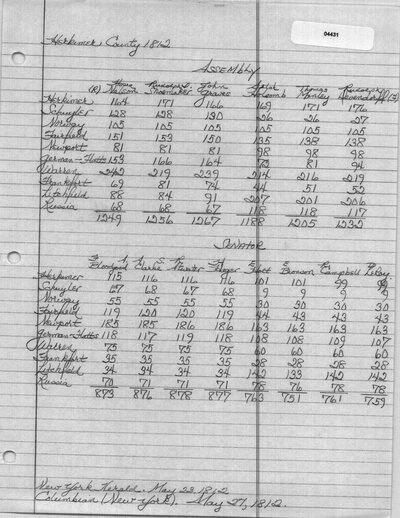 04431
Herkimer County 1812
Assembly
Thos Rudolph I John Caleb Thomas Rudolph
(R) Shoemaker Graves Holcomb Manley Devendorff (F)
Herkimer 164 171 166 169 171 176
Schuyler 128 128 130 26 26 27
Norway 105 105 105 105 105 105
Fairfield 151 153 150 135 138 138
Newport 81 81 81 98 98 98
German-Flatts 153 166 164 81 94
Warren 242 219 239 214 216 219
Frankfort 69 81 74 44 51 52
Litchfield 88 84 91 207 201 206
Russia 68 68 67 118 118 117
1249 1256 1267 1188 1205 1232
Senator
Bloodgood Clarke Hager Bronson Campbell
Herkimer 115 116 116 116 101 101 99 99
Schuyler 67 68 67 68 9 9 9 9
Norway 55 55 55 55 30 30 30 30
Fairfield 119 120 120 119 44 43 43 43
Newport 185 185 186 186 163 163 163 163
German-Flatts 118 117 119 118 108 108 109 107
Warren 75 75 75 75 60 60 60 60
Frankfort 35 35 35 35 28 28 28 28
Litchfield 34 34 34 34 142 133 142 142
Russia 70 71 71 71 78 76 78 78
873 876 878 877 763 751 761 759
New York Herald. May 23, 1812
Columbian (New York). May 27, 1812.